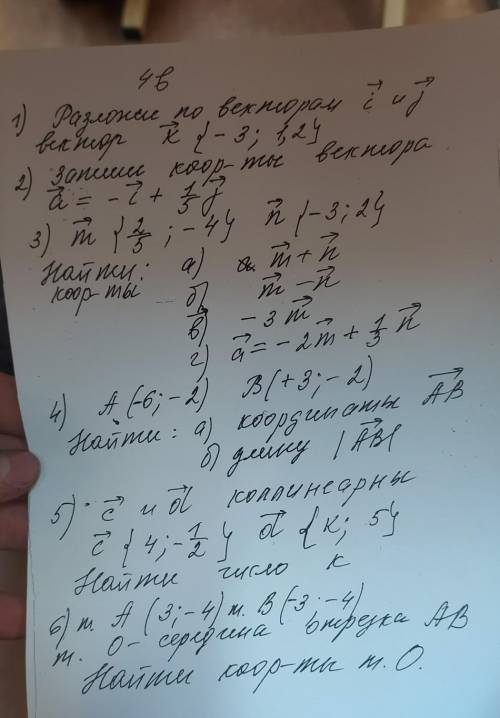 4в
1) Разложи по векторам i⃗ и j⃗
вектор x⃗ {-3; 1,2}
2) Запиши коор-ты вектора
a⃗ = -i⃗ + 1/5 j⃗
3) m⃗ {2/5; -4} n⃗ {-3; 2}
Найти: а) m⃗ + n⃗
коор-ты б) m⃗ - n⃗
в) -3 m⃗
г) a⃗ = -2m⃗ + 1/3 n⃗
4) A (-6; -2) B (+3; -2)
Найти: а) координаты AB⃗
б) длину |AB⃗|
5) c⃗ и d⃗ коллинеарны
c⃗ {4; -1/2} d⃗ {к; 5}
Найти число к
6) т. A (3; -4) т. B (-3; -4)
т. O - середина отрезка AB
Найти коор-ты т. O.